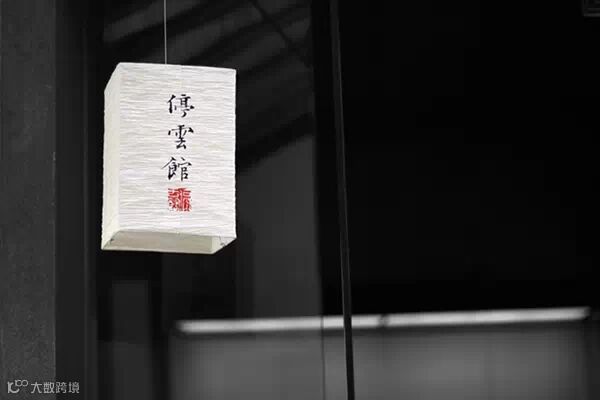 停雲館
大数跨境